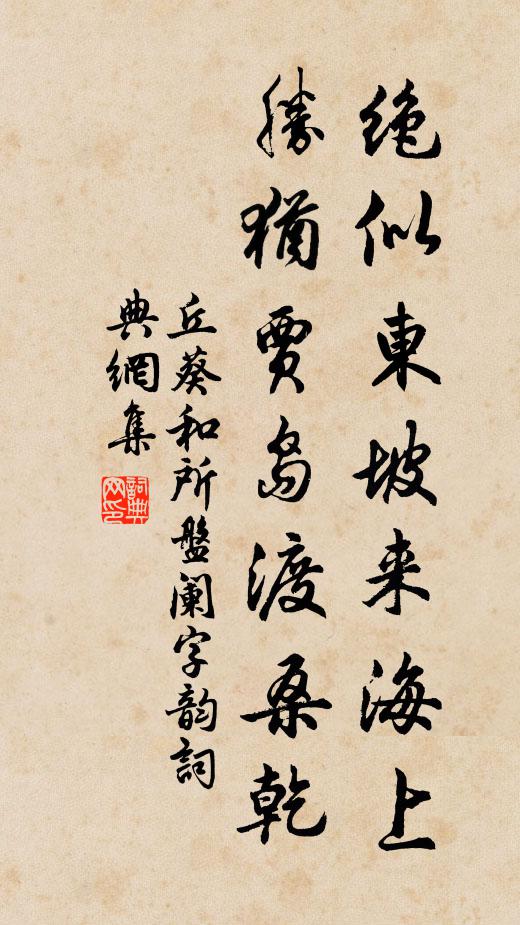 絶似東坡来海上
勝猶賈島渡桑乾
丘葵和所盤阑字韵詞
典網集
詞典网印